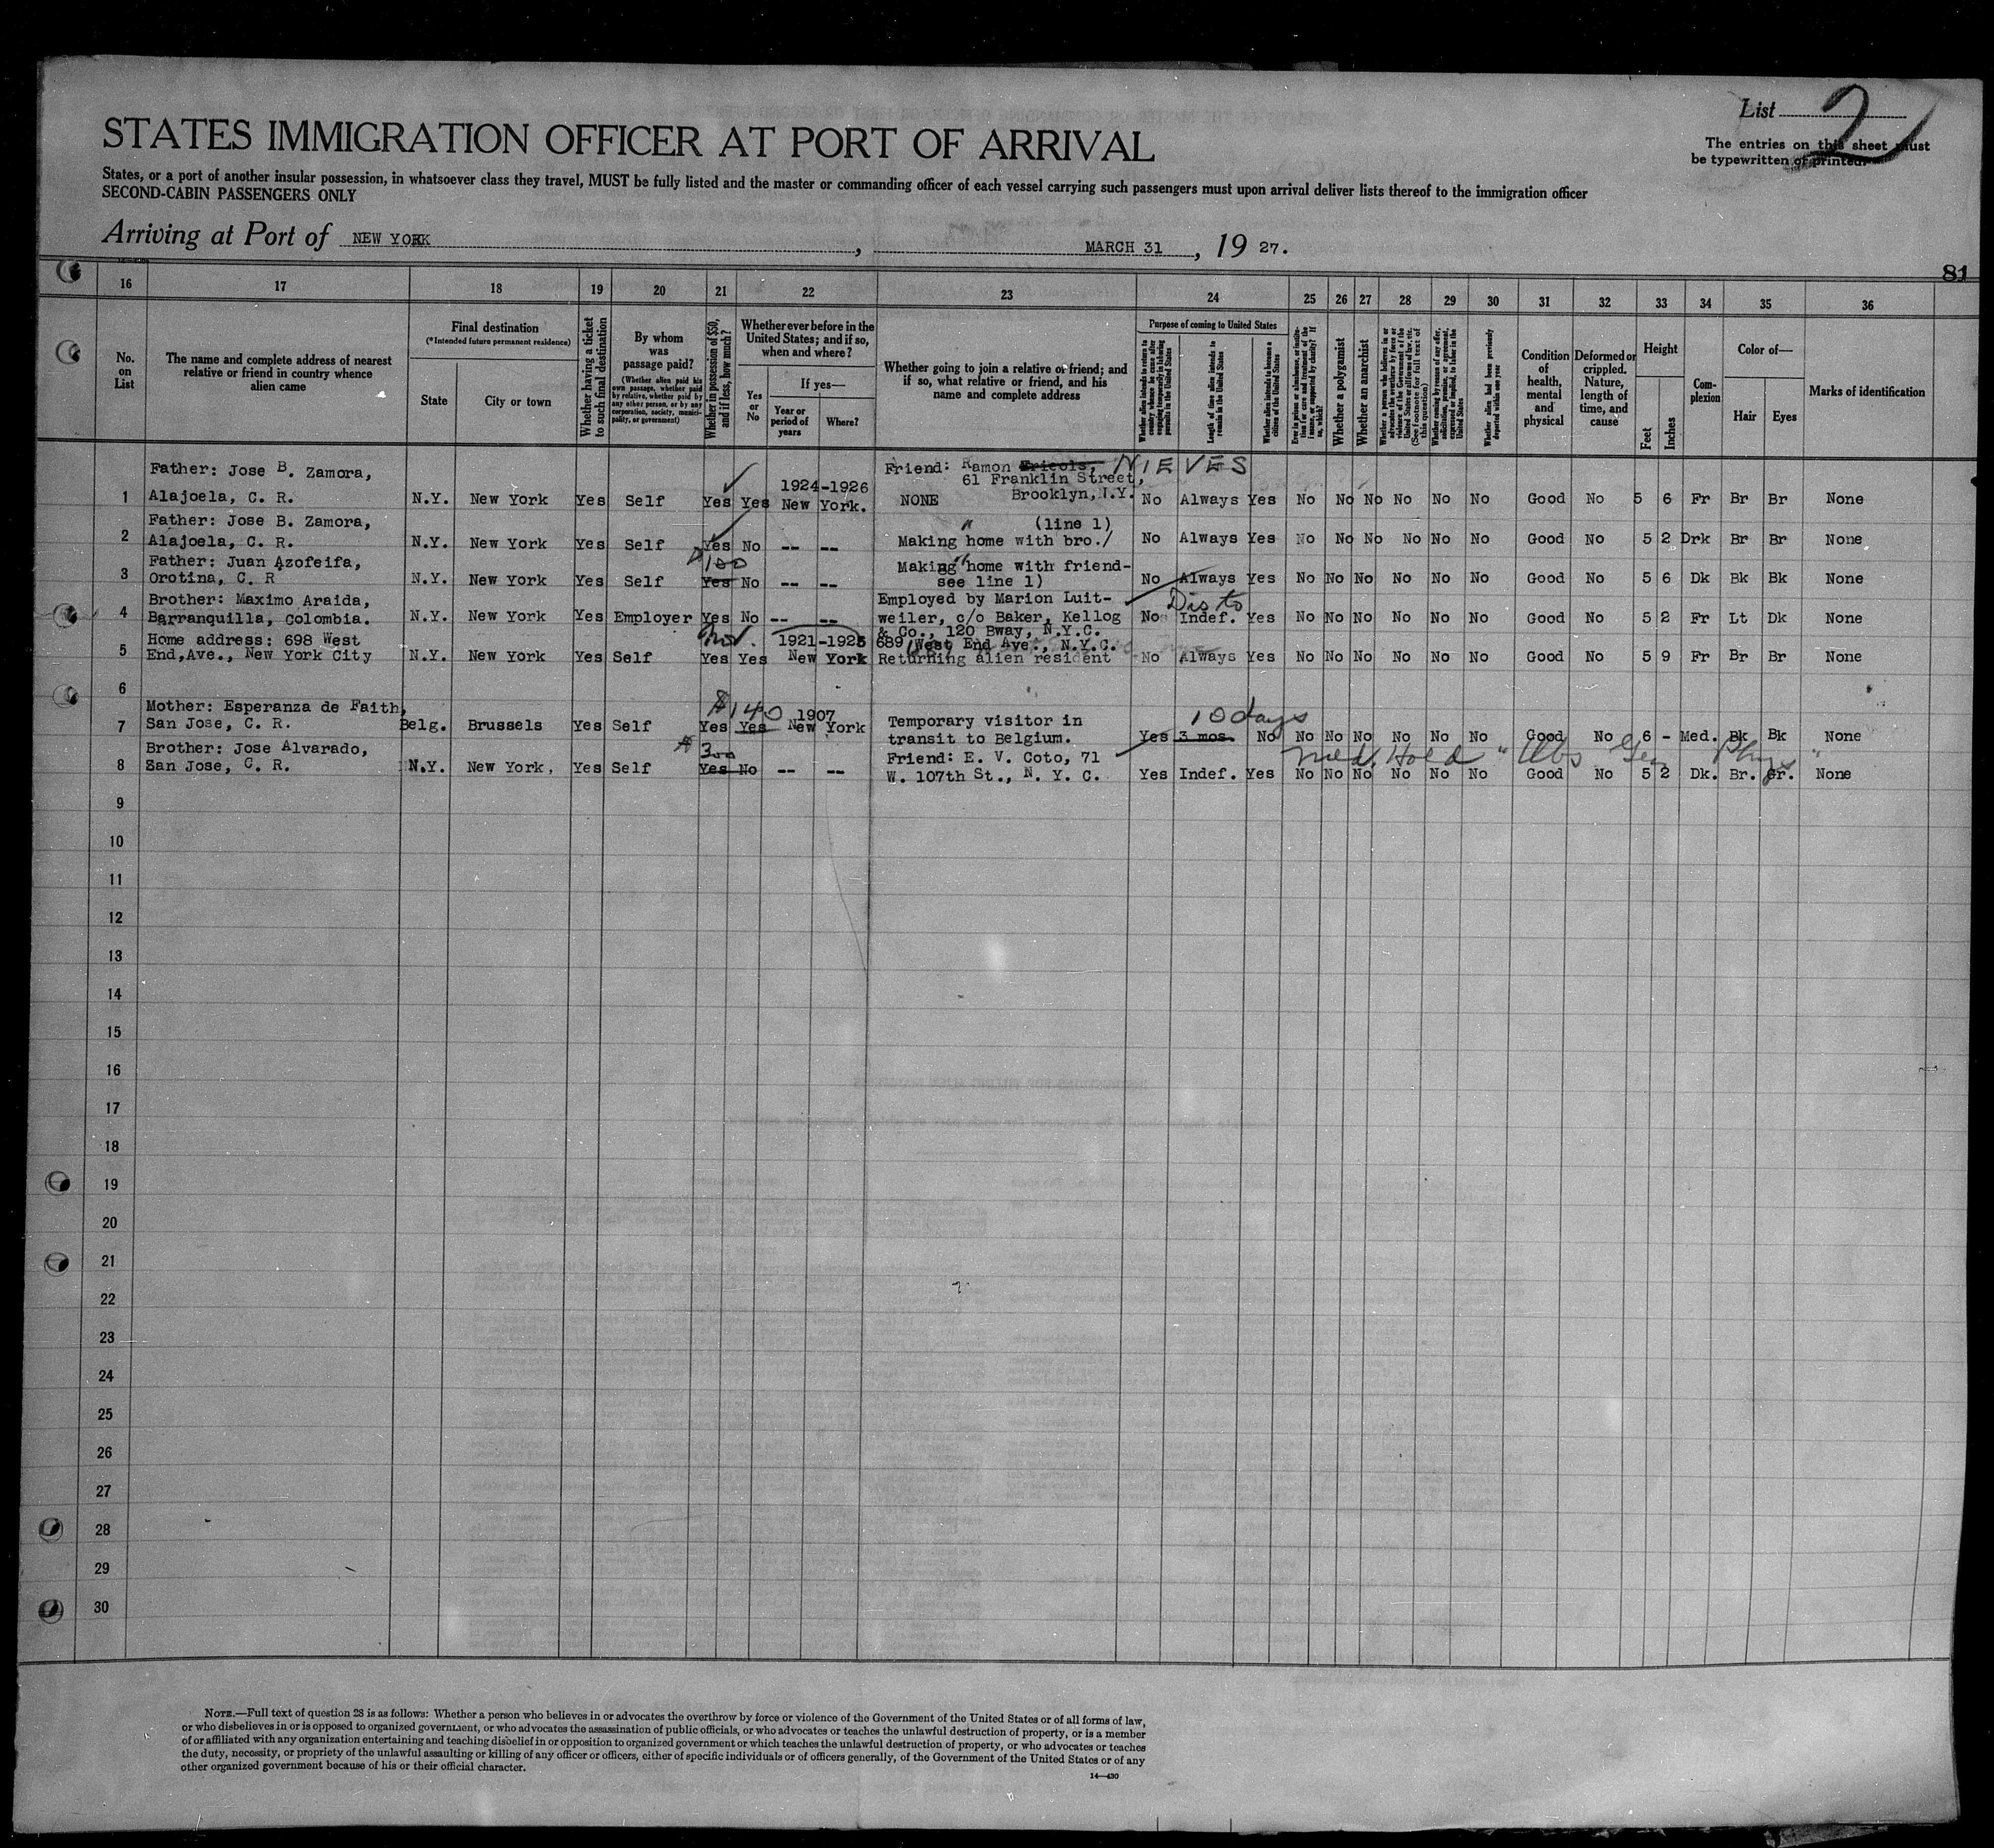 List 2
The entries on this sheet must
be typewritten or printed.
STATES IMMIGRATION OFFICER AT PORT OF ARRIVAL
States, or a port of another insular possession, in whatsoever class they travel, MUST be fully listed and the master or commanding officer of each vessel carrying such passengers must upon arrival deliver lists thereof to the immigration officer
SECOND-CABIN PASSENGERS ONLY
Arriving at Port of NEW YORK, MARCH 31, 19 27.
81
16 17 18 19 20 21 22 23 24 25 26 27 28 29 30 31 32 33 34 35 36
No. on List
The name and complete address of nearest relative or friend in country whence alien came
Final destination
(*Intended future permanent residence)
State
City or town
Whether having a ticket to such final destination
By whom was passage paid?
(Whether alien paid his own passage, whether paid by relative, whether paid by any other person, or by any corporation, society, municipality, or government)
Whether in possession of $50, and if less, how much?
Whether ever before in the United States; and if so, when and where?
Yes or No
If yes—
Year or period of years
Where?
Whether going to join a relative or friend; and if so, what relative or friend, and his name and complete address
Purpose of coming to United States
Whether alien intends to return to country whence he came after engaging temporarily in laboring pursuits in the United States
Length of time alien intends to remain in the United States
Whether alien intends to become a citizen of the United States
Ever in prison or almshouse, or institution for care and treatment of the insane, or supported by charity? If so, which?
Whether a polygamist
Whether an anarchist
Whether a person who believes in or advocates the overthrow by force or violence of the Government of the United States or all forms of law, etc. (See footnote for full text of this question)
Whether coming by reason of any offer, solicitation, promise, or agreement, expressed or implied, to labor in the United States
Whether alien had been previously deported within one year
Condition of health, mental and physical
Deformed or crippled. Nature, length of time, and cause
Height
Feet
Inches
Complexion
Color of—
Hair
Eyes
Marks of identification
Father: Jose B. Zamora, Friend: Ramon NIEVES
1924-1926 61 Franklin Street,
1 Alajoela, C. R. N.Y. New York Yes Self Yes Yes New York. NONE Brooklyn, N.Y. No Always Yes No No No No No No Good No 5 6 Fr Br Br None
Father: Jose B. Zamora, " (line 1)
2 Alajoela, C. R. N.Y. New York Yes Self Yes No -- -- Making home with bro./ No Always Yes No No No No No No Good No 5 2 Drk Br Br None
Father: Juan Azofeifa, $100 Making home with friend-
3 Orotina, C. R N.Y. New York Yes Self Yes No -- -- see line 1) No Always Yes No No No No No No Good No 5 6 Dk Bk Bk None
Brother: Maximo Araida, Employed by Marion Luit- Dis to
4 Barranquilla, Colombia. N.Y. New York Yes Employer Yes No -- -- weiler, c/o Baker, Kellog No Indef. Yes No No No No No No Good No 5 2 Fr Lt Dk None
& Co., 120 Bway, N.Y.C.
Home address: 698 West 1921-1926 689 West End Ave., N.Y.C.
5 End,Ave., New York City N.Y. New York Yes Self Yes Yes New York Returning alien resident No Always Yes No No No No No No Good No 5 9 Fr Br Br None
6
Mother: Esperanza de Faith, $140 1907 10 days
7 San Jose, C. R. Belg. Brussels Yes Self Yes Yes New York Temporary visitor in
transit to Belgium. Yes 3 mos. No No No No No No No Good No 6 - Med. Bk Bk None
Brother: Jose Alvarado, $300 Friend: E. V. Coto, 71 Med. Hold
8 San Jose, C. R. N.Y. New York, Yes Self Yes No -- -- W. 107th St., N. Y. C. Yes Indef. Yes No No No No No No Good No 5 2 Dk. Br. Gr. None
9
10
11
12
13
14
15
16
17
18
19
20
21
22
23
24
25
26
27
28
29
30
NOTE.—Full text of question 28 is as follows: Whether a person who believes in or advocates the overthrow by force or violence of the Government of the United States or of all forms of law,
or who disbelieves in or is opposed to organized government, or who advocates the assassination of public officials, or who advocates or teaches the unlawful destruction of property, or is a member
of or affiliated with any organization entertaining and teaching disbelief in or opposition to organized government or which teaches the unlawful destruction of property, or who advocates or teaches
the duty, necessity, or propriety of the unlawful assaulting or killing of any officer or officers, either of specific individuals or of officers generally, of the Government of the United States or of any
other organized government because of his or their official character.
14—430